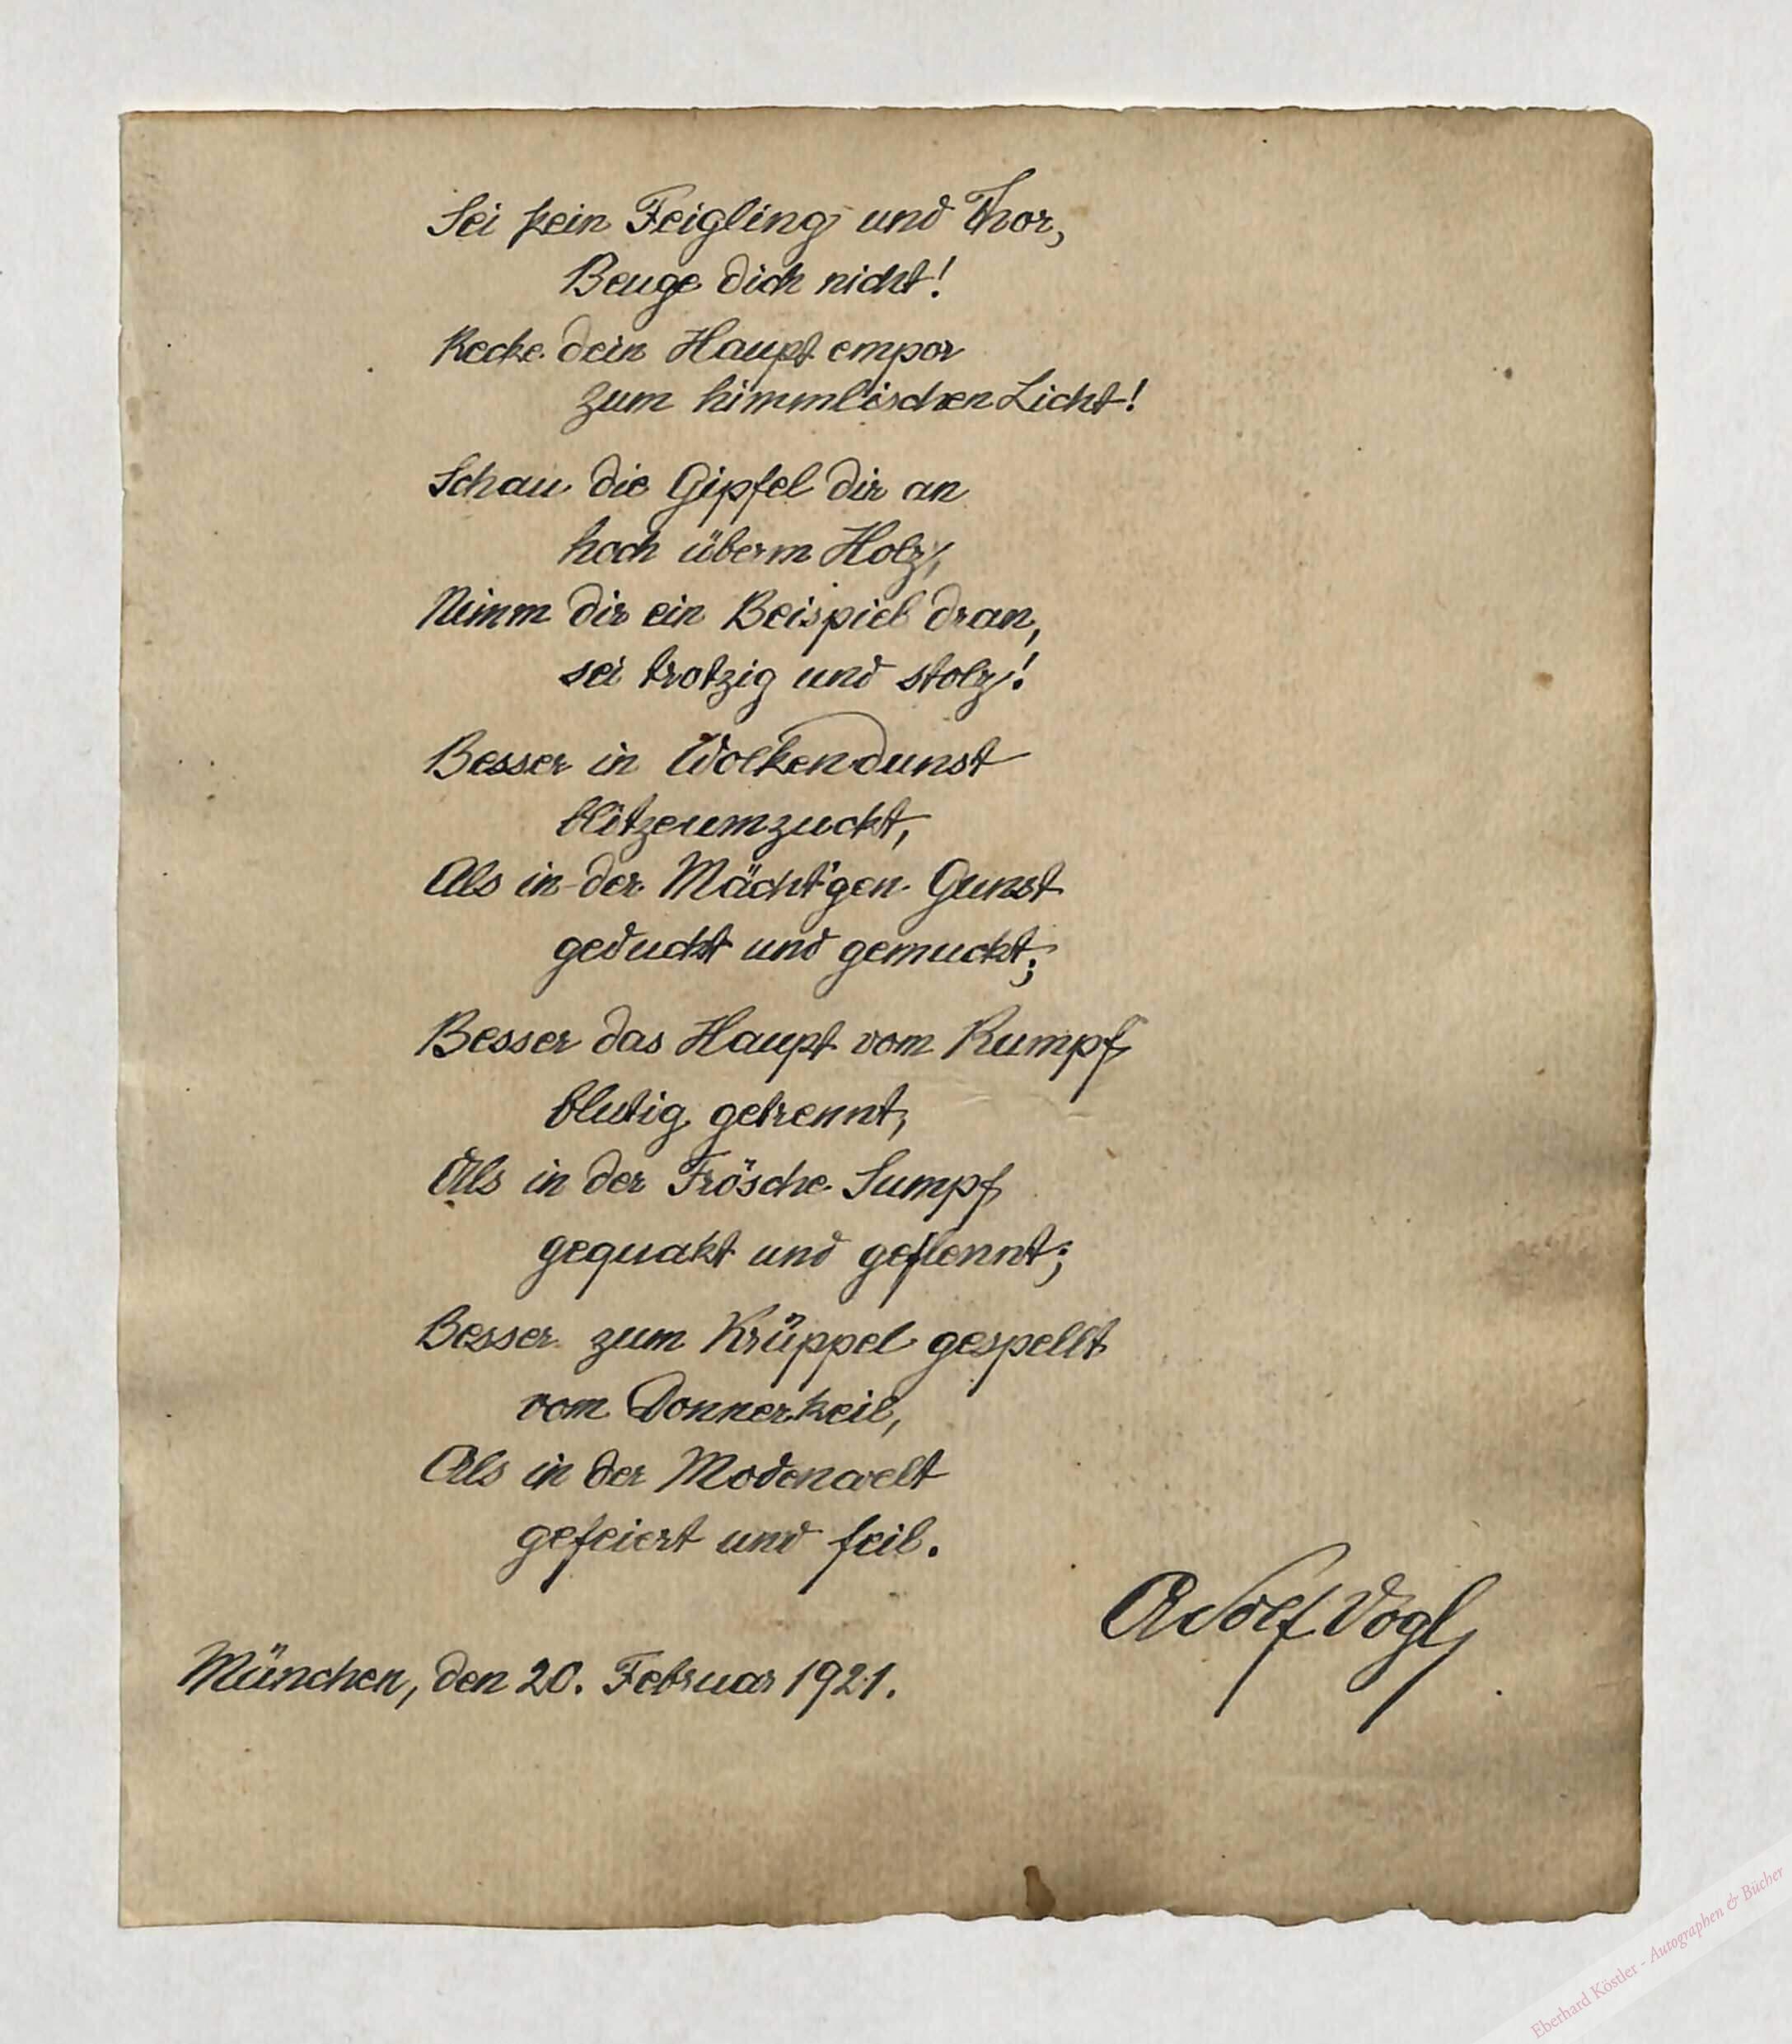 Sei kein Feigling und Thor,
Beuge dich nicht!
Recke dein Haupt empor
zum himmlischen Licht!
Schau die Gipfel dir an
hoch überm Holz,
Nimm dir ein Beispiel dran,
sei trotzig und stolz!
Besser in Wolkendunst
blitzeumzuckt,
Als in der Mächt'gen Gunst
geduckt und gemuckt;
Besser das Haupt vom Rumpf
blutig getrennt,
Als in der Frösche Sumpf
gequakt und geflennt;
Besser zum Krüppel gespellt
vom Donnerkeil,
Als in der Modenwelt
gefeiert und feil.
Adolf Vogl
München, den 20. Februar 1921.
Eberhard Köstler - Autographen & Bücher